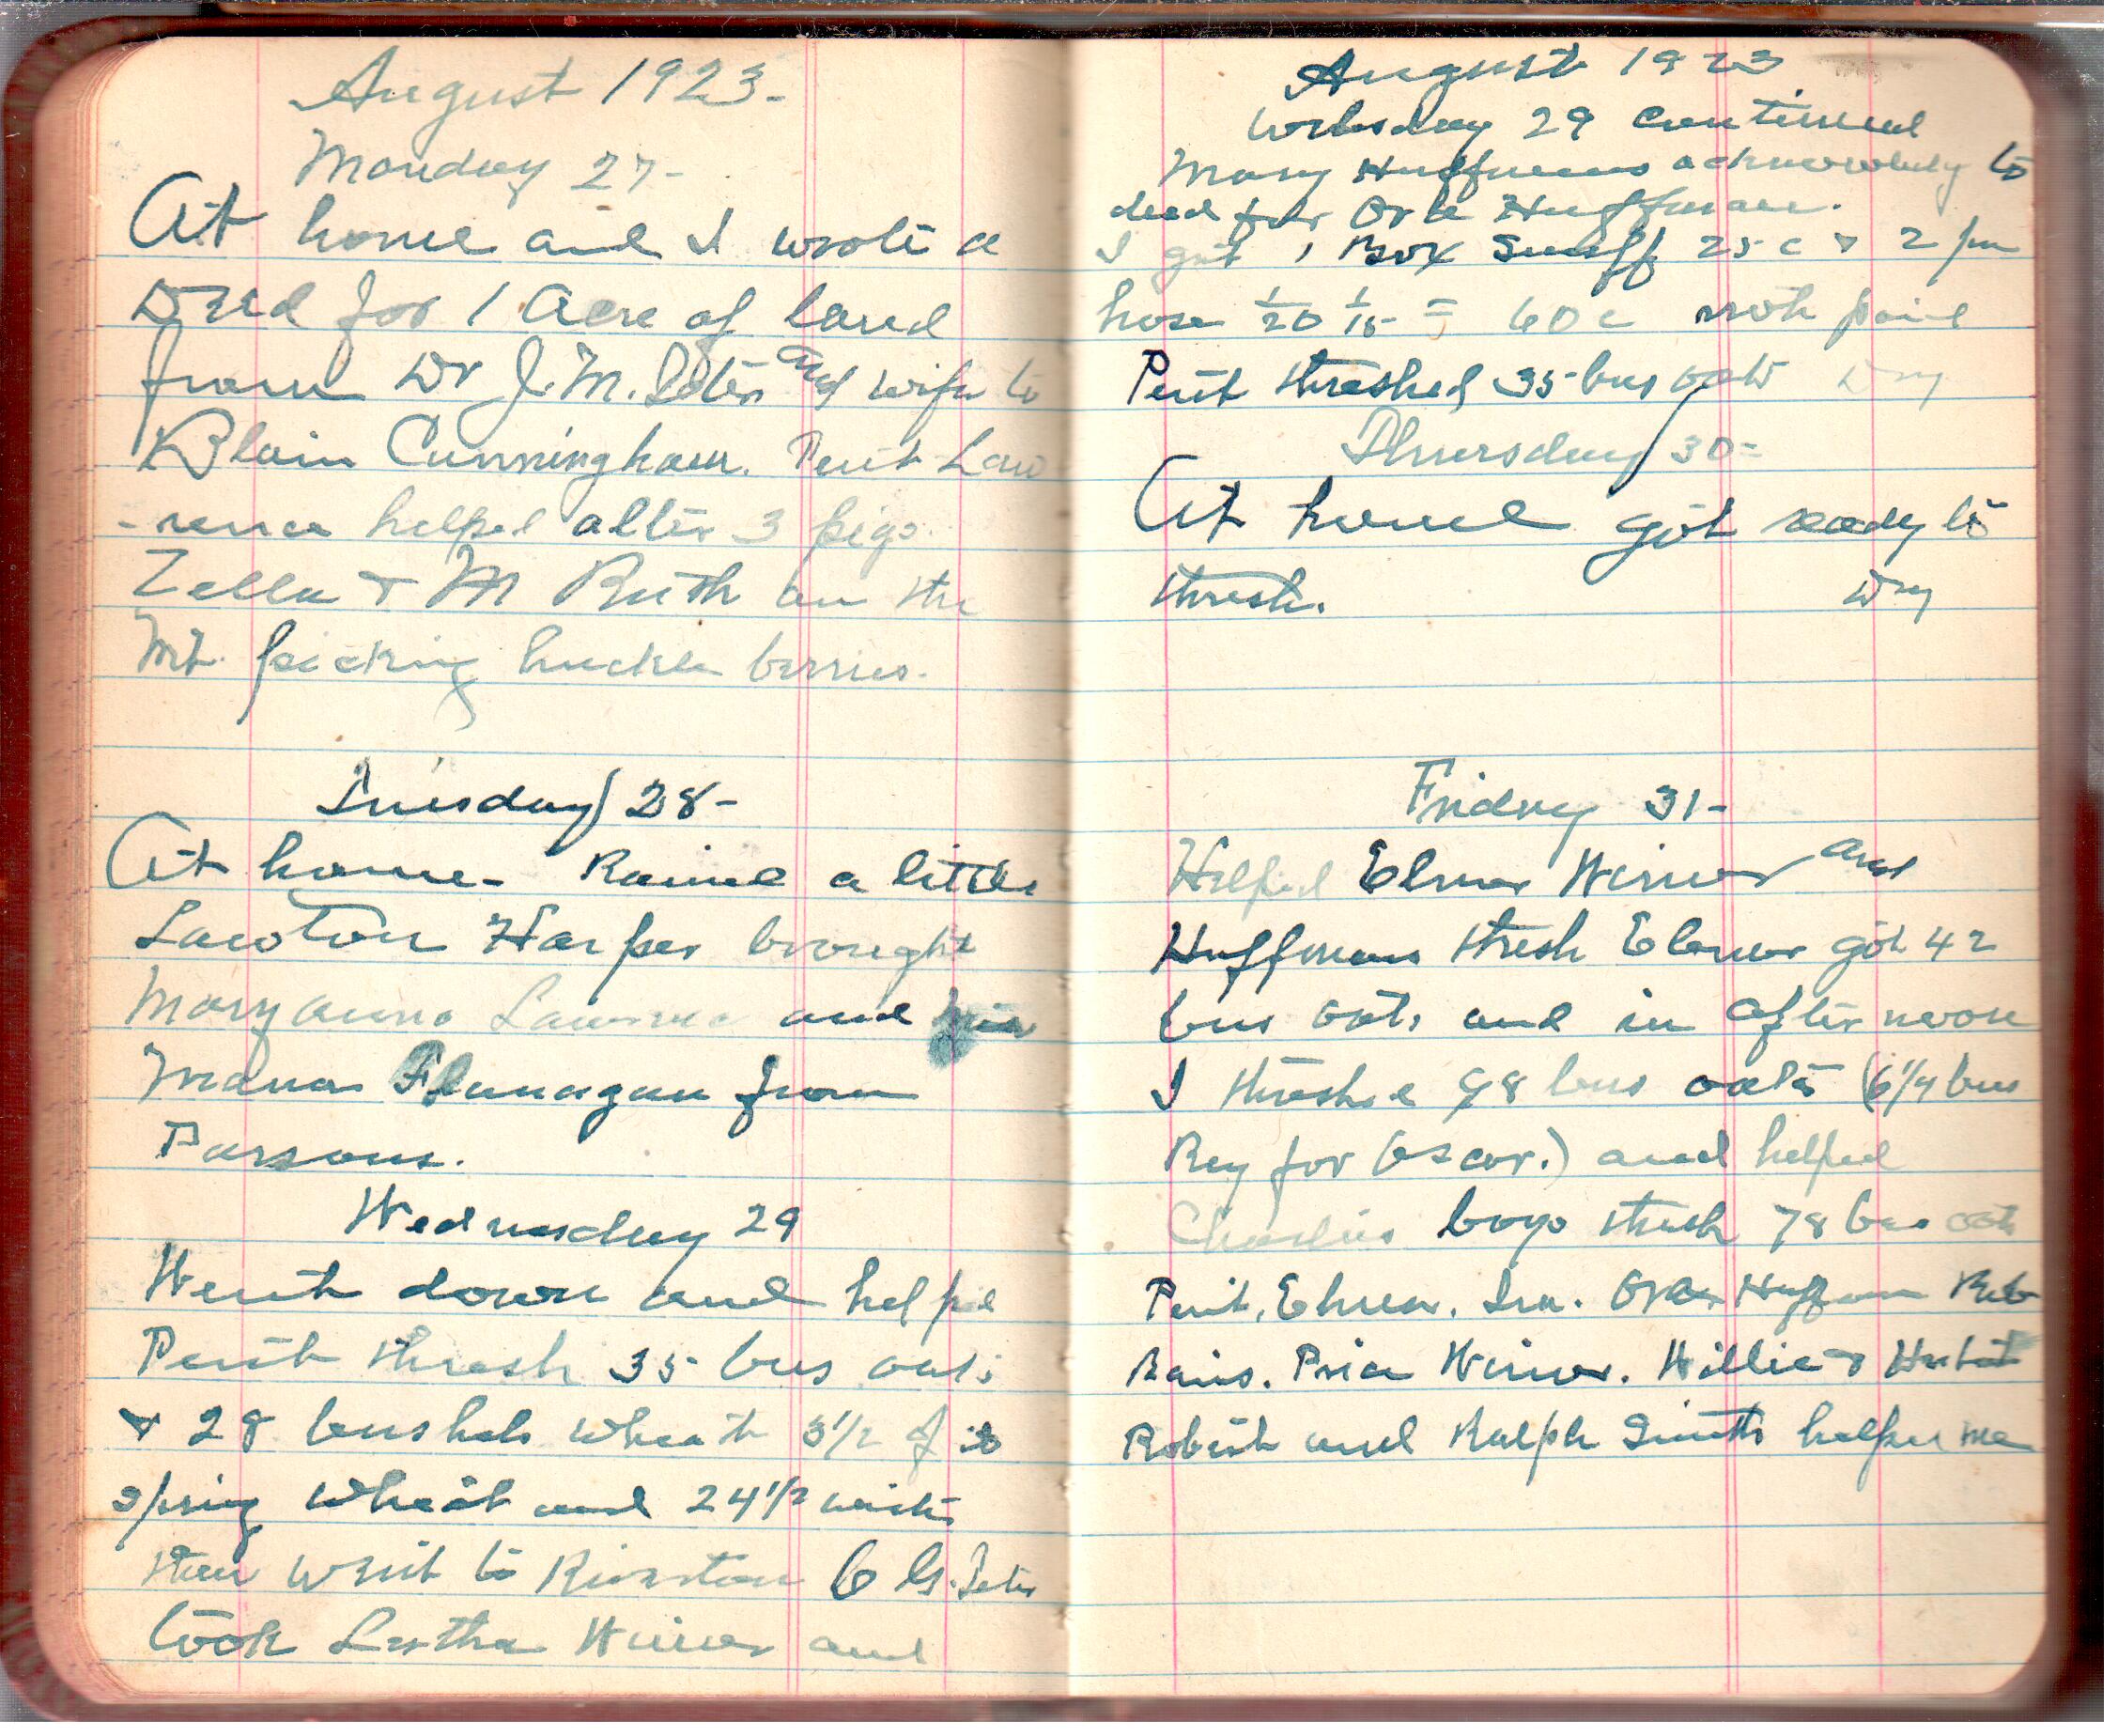 August 1923-
Monday 27-
At home and I wrote a
Deed for 1 Acre of land
from Dr J. M. Seter and wife to
Blain Cunningham. Perit Law
-rence helped alter 3 pigs.
Zella & M Ruth on the
Mt. picking huckle berries.
Tuesday 28-
At home- Rained a little
Lawton Harper brought
Mary anna Lawrence and
Flanagan from
Parsons.
Wednesday 29
Went down and helped
Perit thresh 35 bus oats
& 28 bushels wheat 3 1/2 of it
spring wheat and 24 1/2 winter
then went to C G. Seter
took Luther Wimer and
August 1923
Wedsday 29 continued
Mary Huffmans acknowledg to
deed for Orh Huffman.
I got 1 Box Snuff 25 c & 2 pr
hose 1/20 1/15 = 60 c not paid
Perit threshed 35 bus oats Dry
Thursday 30-
At home got ready to
thresh. Dry
Friday 31-
Helped Elmer Wimer and
Huffmans thresh Elmer got 42
bus oats and in after noon
I threshed 98 bus oats (6 1/4 bus
Rey for Oscar.) and helped
Charlies boys thresh 78 bus oats
Perit, Elmer. Ira. Huffman
Price Wimer. Willie & Herbert
Robert and Ralph Smith helped me